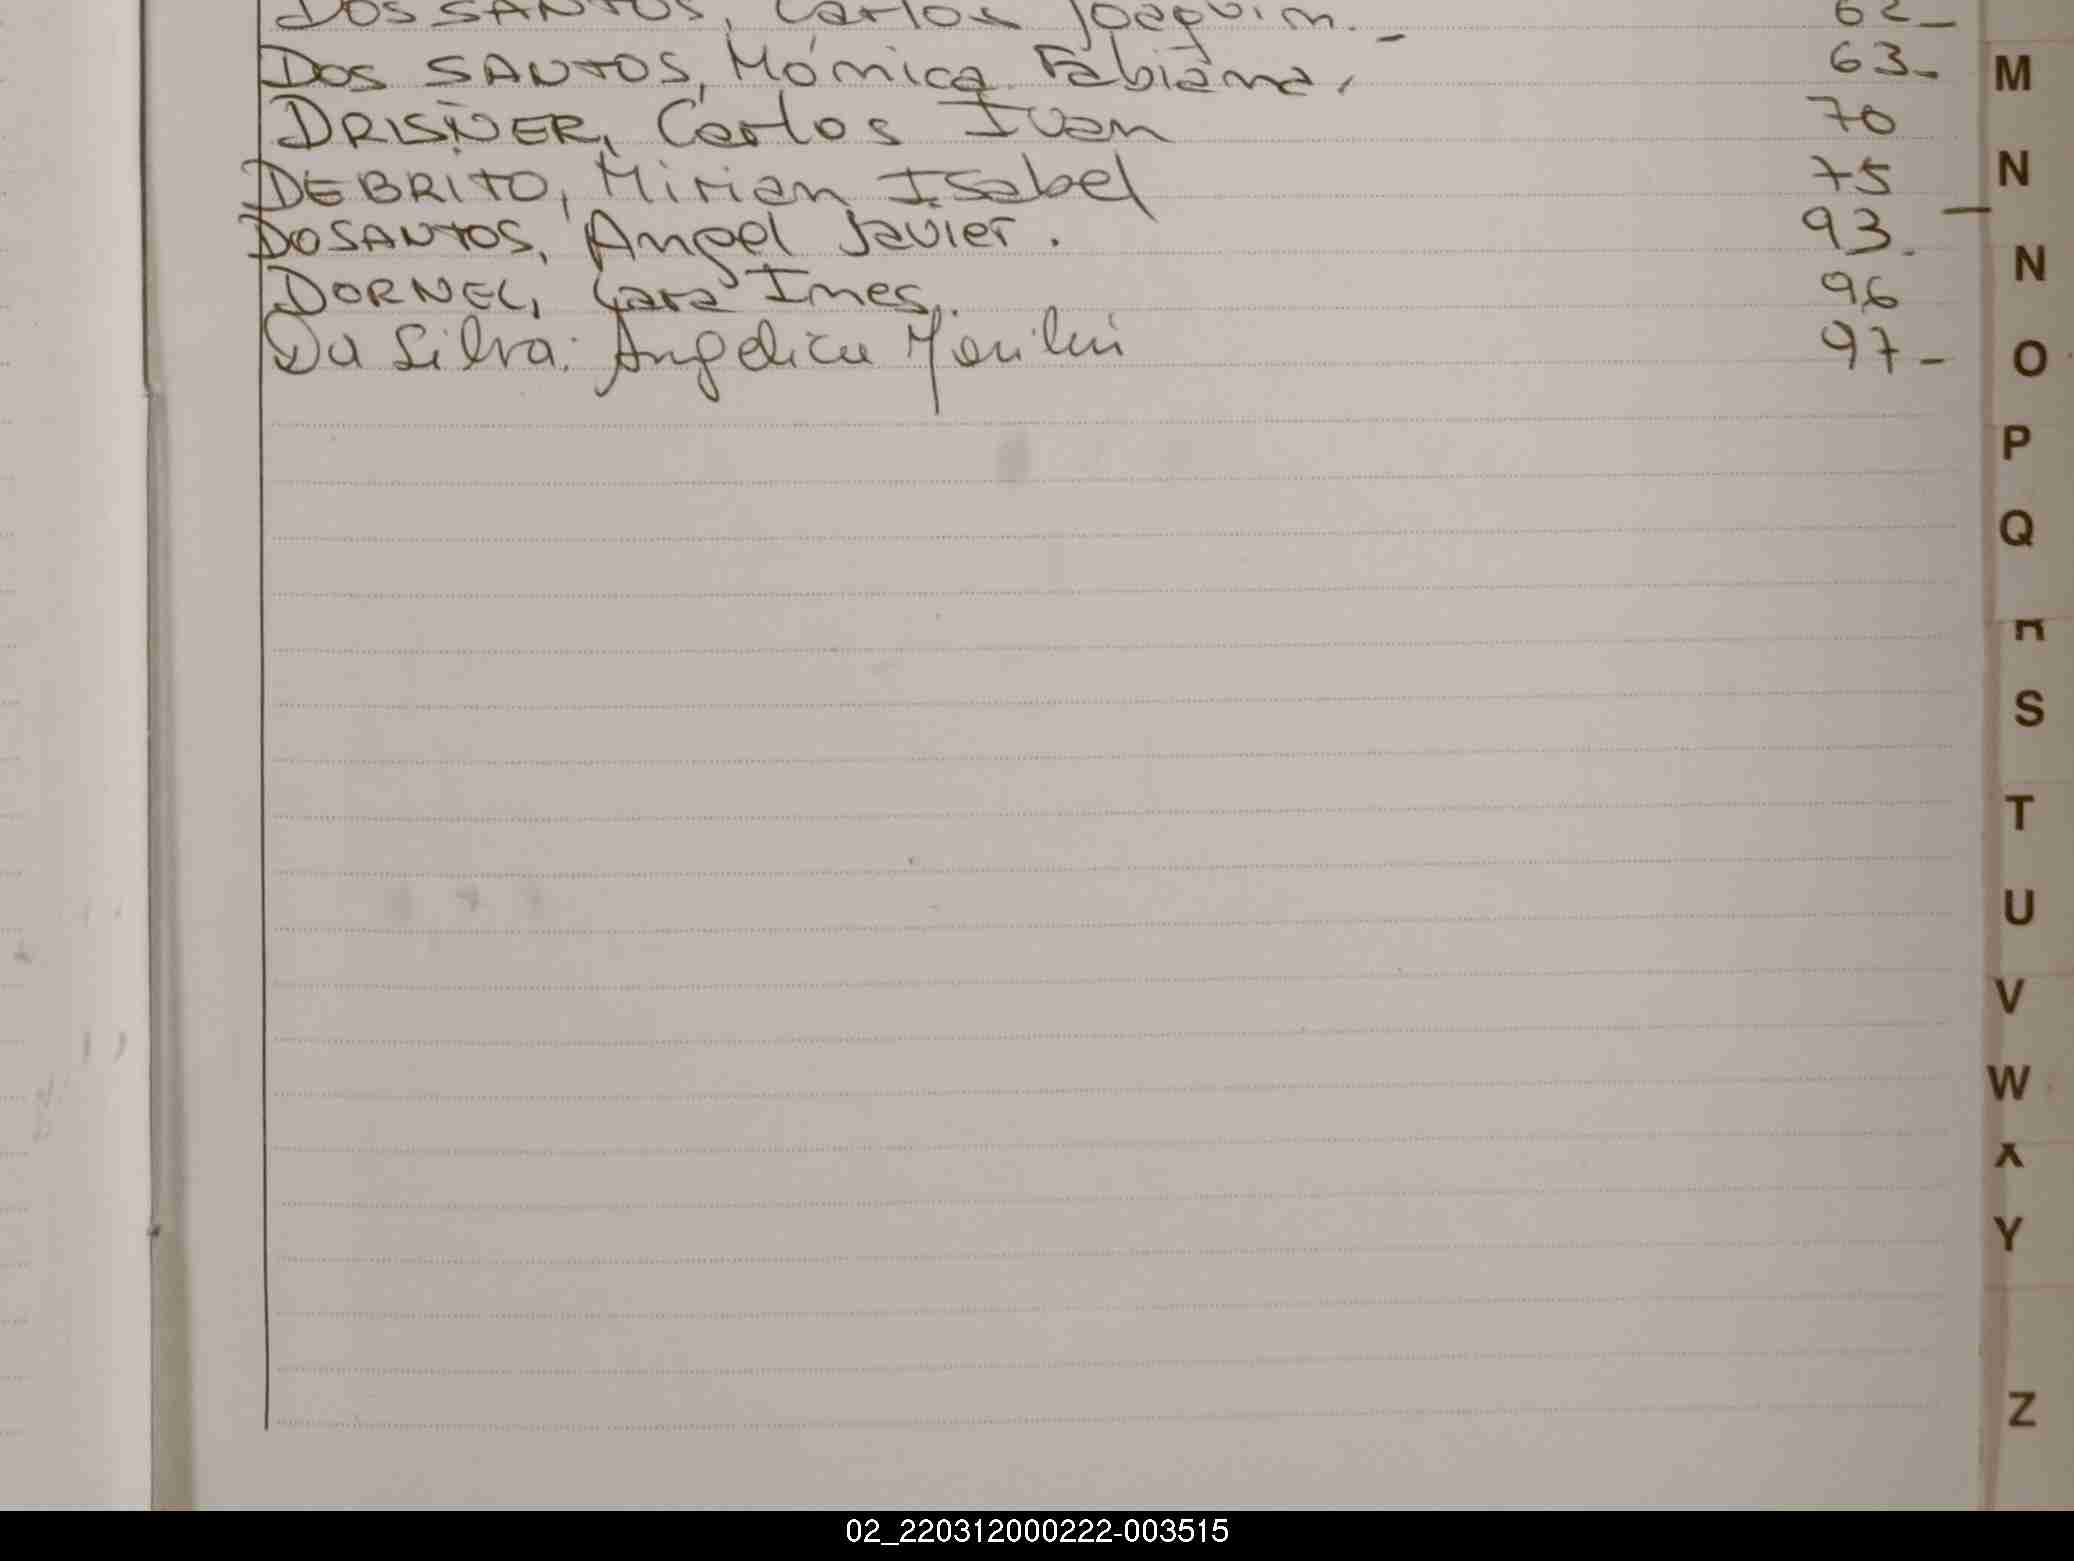 DOS SANTOS, Carlos Joaquim.- 62-
DOS SANTOS, Mónica Fabiana. 63-
DRISNER, Carlos Ivan 70
DEBRITO, Mirian Isabel 75
DOSANTOS, Angel Javier. 93.-
DORNEL, Yara Ines. 96
Da Silva: Angelica 97-
M
N
N
O
P
Q
R
S
T
U
V
W
X
Y
Z
02_220312000222-003515